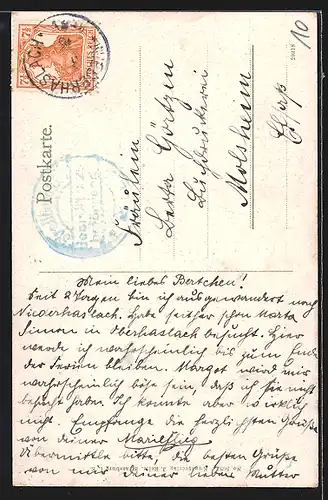 Postkarte.
7½
7½
10
29018
Fräulein
Berta Görtzen
Buchdruckerei
Molsheim
Elsaß
Mein liebes Bertchen!
Seit 2 Tagen bin ich ausgewandert nach
Niederhaslach. Habe seither schon Marta
Simon in Oberhaslach besucht. Hier
werde ich wahrscheinlich bis zum Ende
der Ferien bleiben. Margot wird mir
wahrscheinlich böse sein, daß ich sie nicht
besucht habe. Ich konnte aber wirklich
nicht. Empfange die herzlichsten Grüße
von deiner
Übermittle bitte, die besten Grüße
von mir deiner lieben Mutter